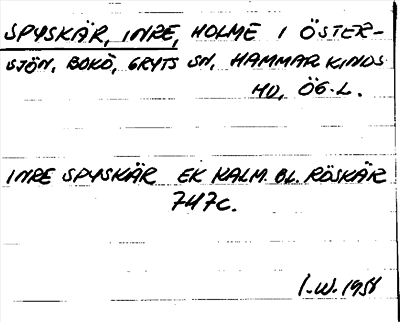 SPYSKÄR, INRE, HOLME I ÖSTER-
SJÖN, BOKÖ, GRYTS SN, HAMMARKINDS
HD, ÖG.L.
INRE SPYSKÄR EK KALM. BL. RÖSKÄR
747c.
I.W. 1958